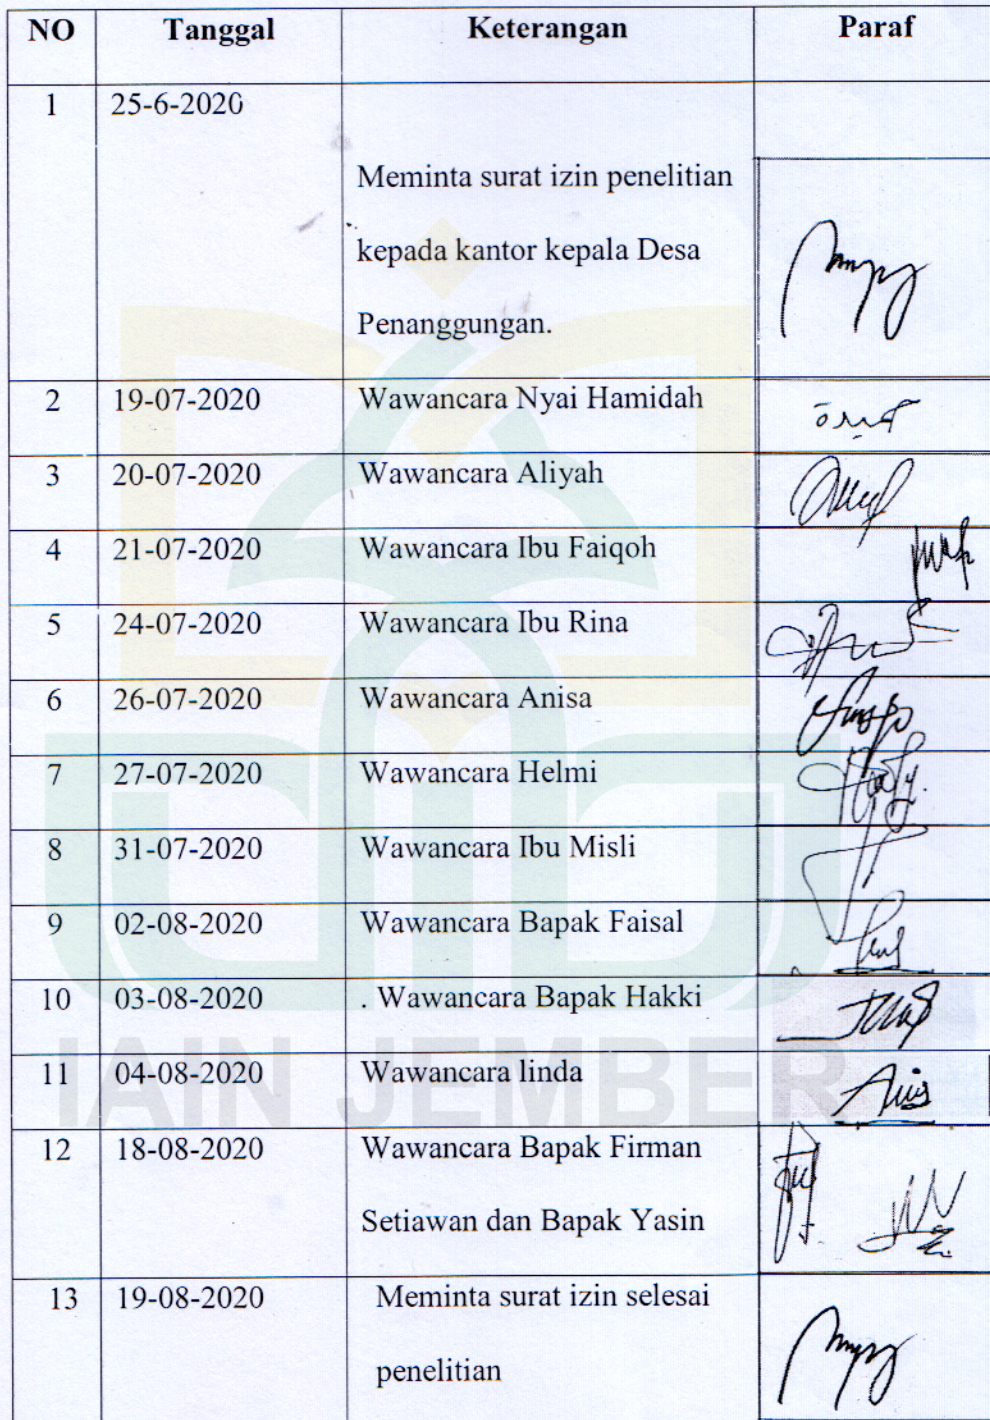 NO Tanggal Keterangan Paraf
1 25-6-2020
Meminta surat izin penelitian
kepada kantor kepala Desa
Penanggungan.
2 19-07-2020 Wawancara Nyai Hamidah
3 20-07-2020 Wawancara Aliyah
4 21-07-2020 Wawancara Ibu Faiqoh
5 24-07-2020 Wawancara Ibu Rina
6 26-07-2020 Wawancara Anisa
7 27-07-2020 Wawancara Helmi
8 31-07-2020 Wawancara Ibu Misli
9 02-08-2020 Wawancara Bapak Faisal
10 03-08-2020 . Wawancara Bapak Hakki
11 04-08-2020 Wawancara linda
IAIN JEMBER
12 18-08-2020 Wawancara Bapak Firman
Setiawan dan Bapak Yasin
13 19-08-2020 Meminta surat izin selesai
penelitian